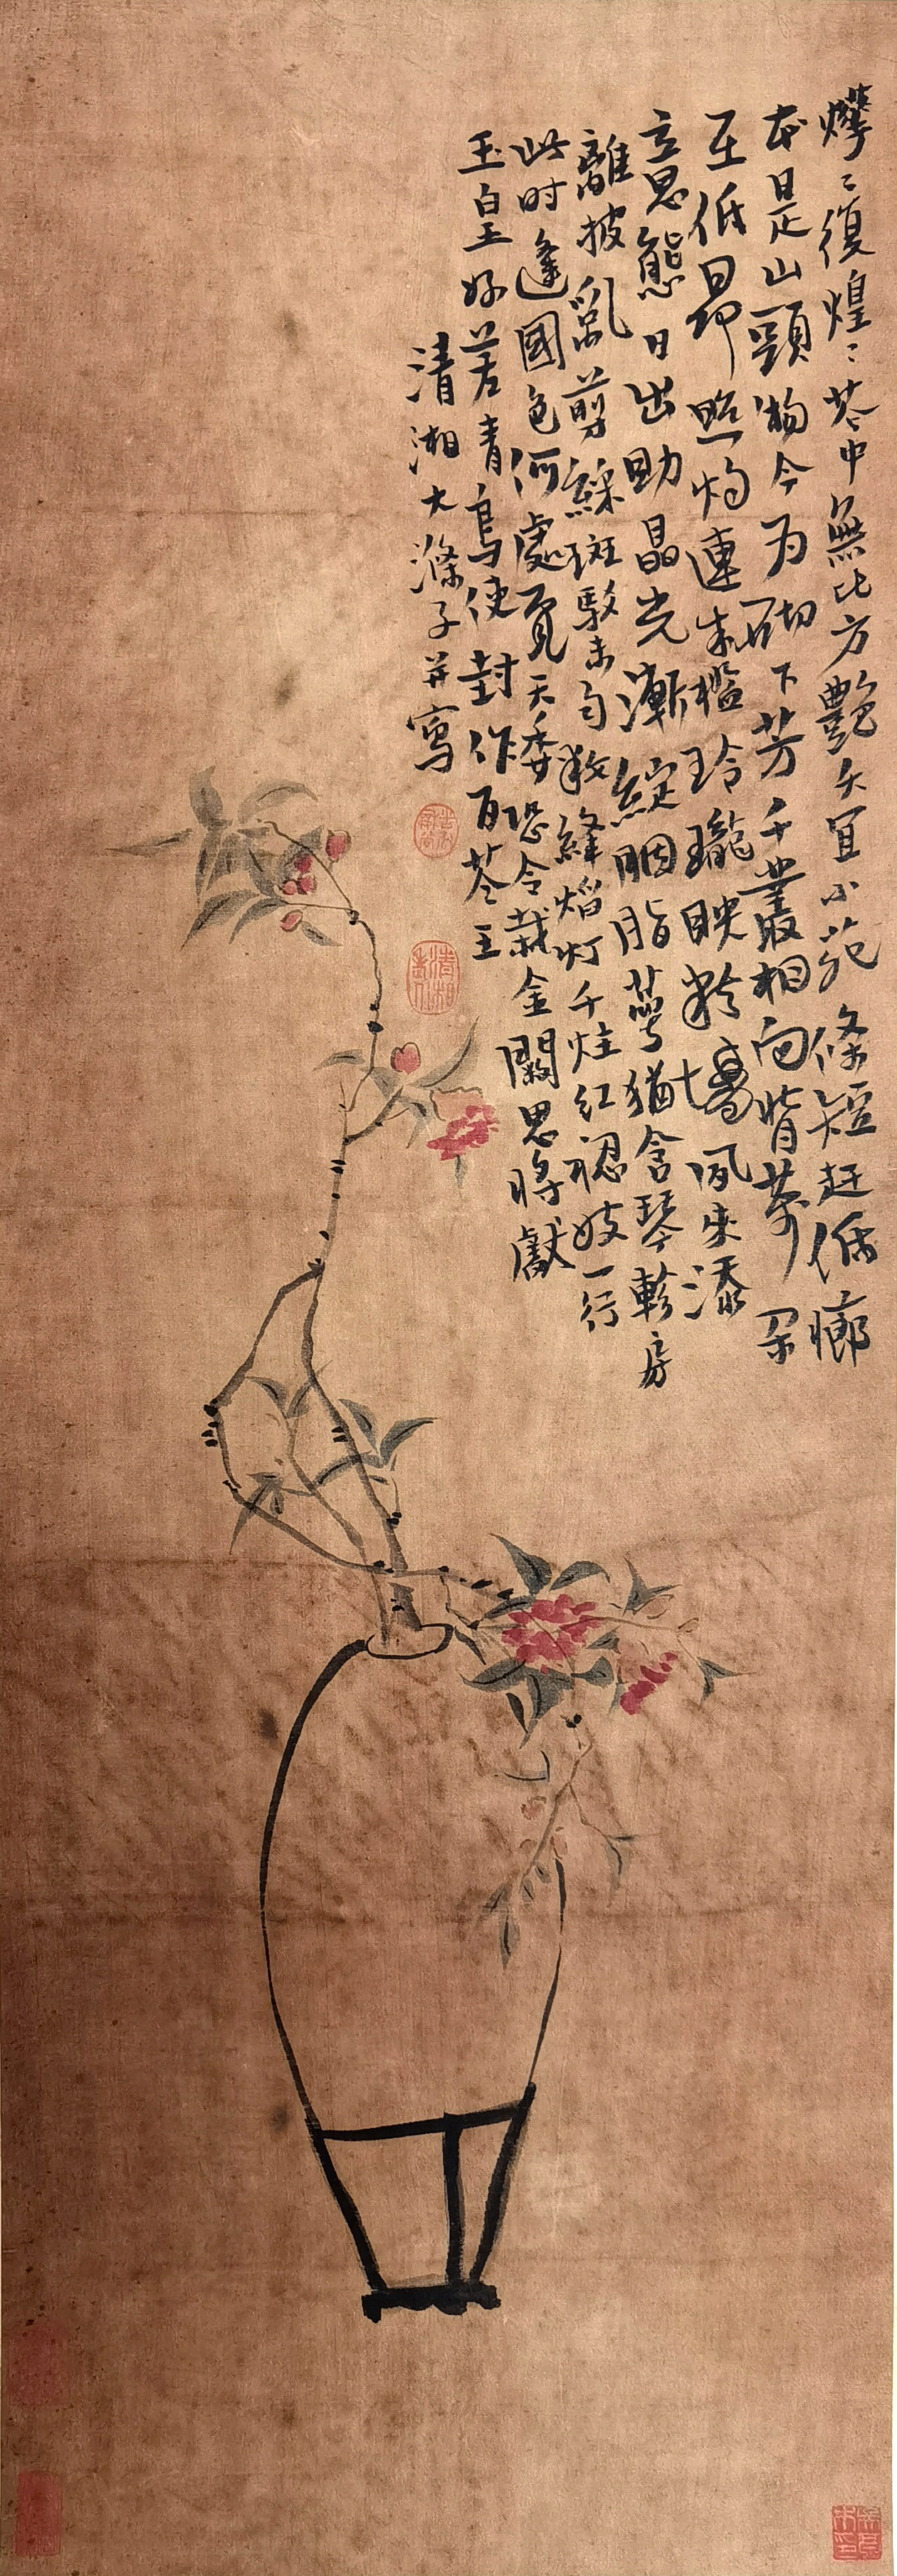 爗〻復煌〻芲中無比方艷夭冝小苑條短赶低廊
本是山頭物今为砌下芳千叢相向背萬朵
互低昂照灼連朱檻玲瓏映粉墻風来添
意態日出助晶光漸綻胭脂萼猶含琴軫房
離披亂剪綵斑駁未匀粧絳焰灯千炷红裙妓一行
此时逢國色何處覓天香恐令栽金闕思將獻
玉皇好差青鳥使封作百芲王
清湘大滌子并寫
清湘老人